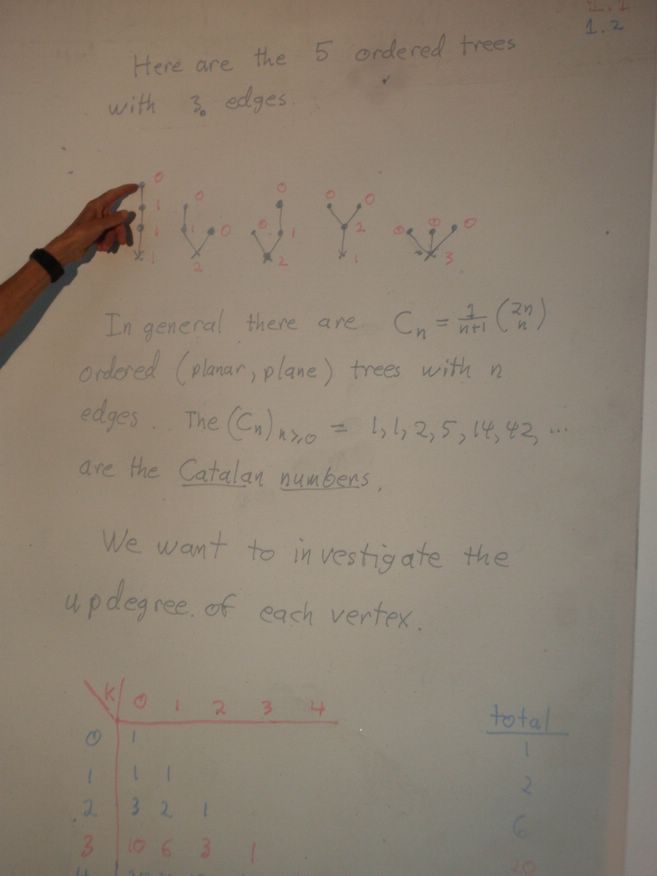 1.2
Here are the 5 ordered trees
with 3 edges.
0 0 0 0 0 0 0 0
1 1 0 0 1 2
1 2 2 1 3
In general there are C_n = 1/(n+1) (2n n)
ordered (planar, plane) trees with n
edges. The (C_n)_{n≥0} = 1, 1, 2, 5, 14, 42, ...
are the Catalan numbers.
We want to investigate the
updegree of each vertex.
K 0 1 2 3 4 total
0 1 1
1 1 1 2
2 3 2 1 6
3 10 6 3 1 20